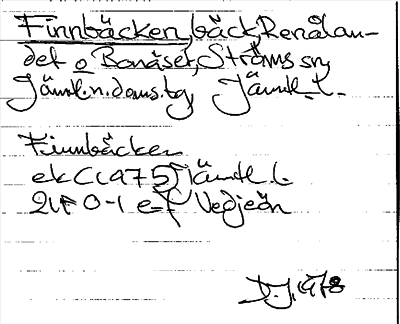 Finnbäcken, bäck Renålan-
det o Bonäset, Ströms sn,
Jämtl.n.doms.tg, Jämtl. l.
Finnbäcken
ekC(1975) Jämtl l.
21F 0-1 e-f Vedjeån
D.J. 1978